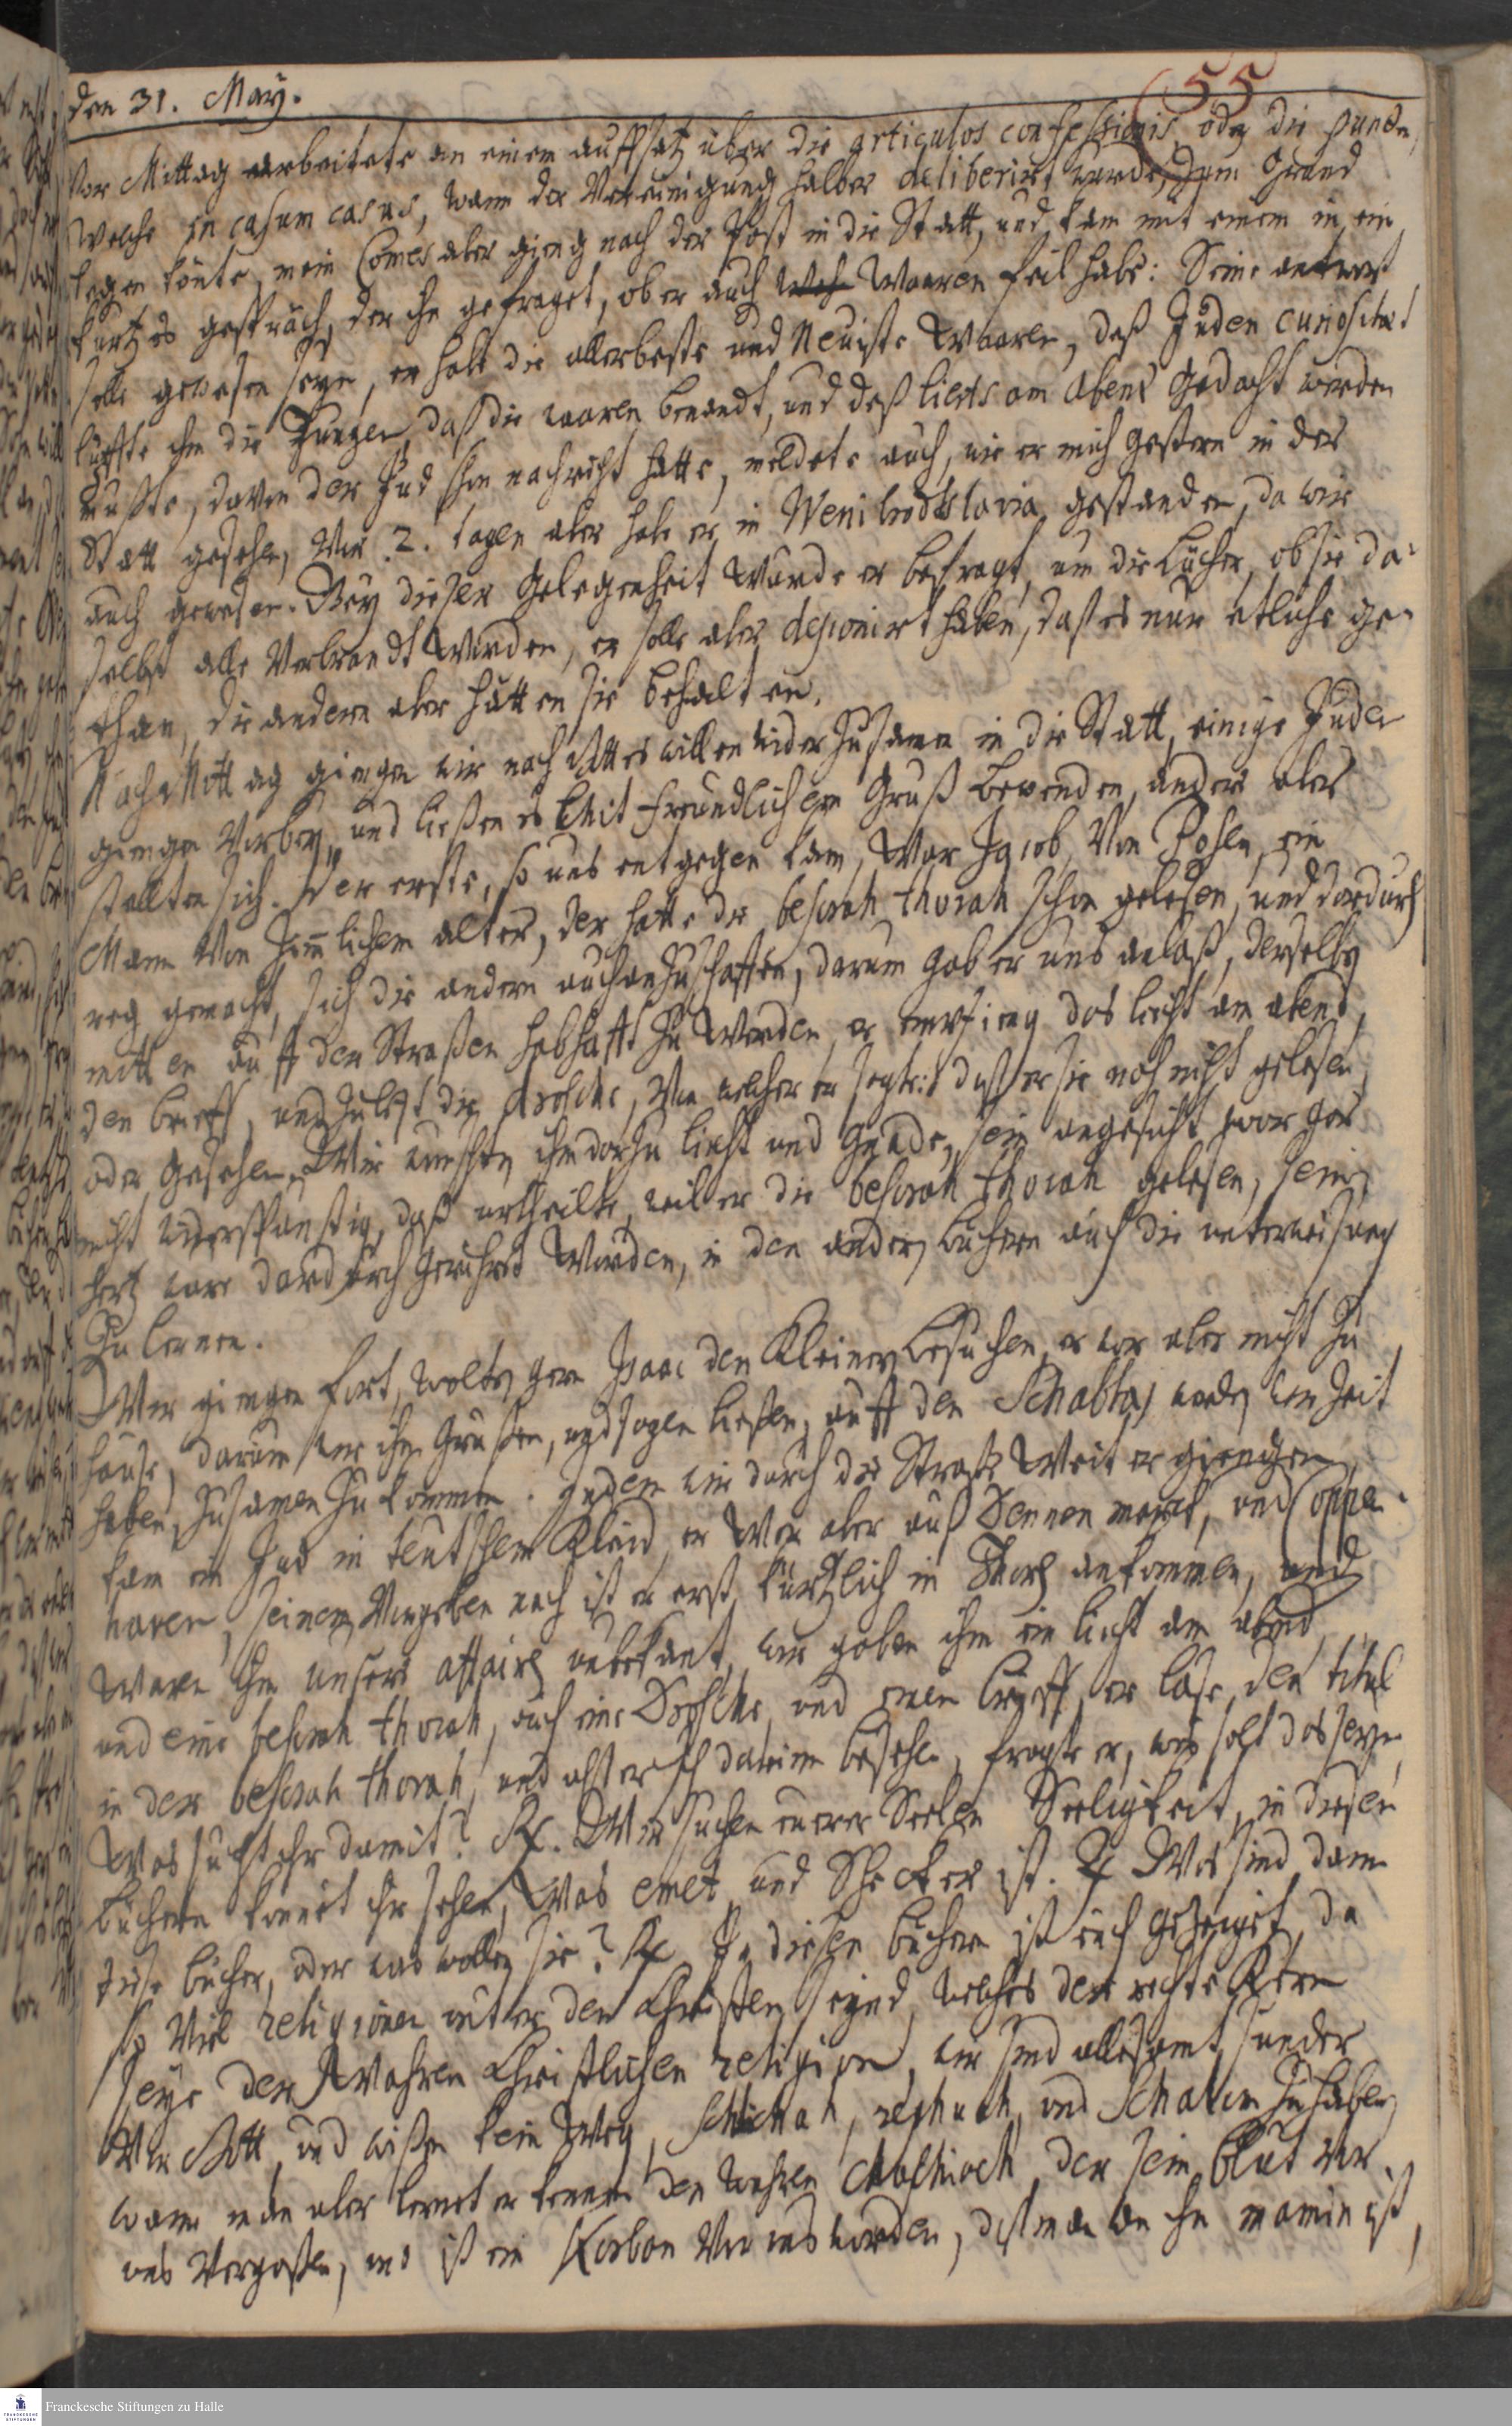 55
den 31. May.
Vor Mittag arbeitete an einem auffsatz über die articulos confessionis, oder die puncten,
welche in casum casus, wann der Vereinigung halber deliberirt würde, zum Grund
legen könte, mein Comes aber gieng nach der Post in die Statt, und kam mit einem in ein
kurtzes gespräch, der ihn gefraget, ob er auch Waaren feil habe: Seine antwort
solle gewesen seyn, er habe die allerbeste und Neuiste Waaren, deß Juden curiositaet
lüffte ihm die Zungen, daß die waaren benandt, und deß liechts am Abend Gedacht werden
muste, davon der Jud schon nachricht hatte, meldete auch, wie er mich gestern in der
Statt gesehen, Vor 2. tagen aber habe er in gestanden, da wir
auch gewesen. Bey dieser Gelegenheit wurde er befragt, um die Bücher, ob sie da-
selbst alle Verbrandt worden, er solle aber deponirt haben, daß es nur etliche ge-
than, die andern aber hätten sie behalten.
Nach Mittag giengen wir nach Gottes willen wider zusamen in die Statt, einige Juden
giengen Vorbey, und ließen es mit freundlichem Gruß bewenden, andere aber
stellten sich. Der erste, so uns entgegen kam, war Jacob, Von Pohlen, ein
Mann Von zimlichem alter, der hatte die besorah thorah schon gelesen, und dardurch
reg gemacht, sich die andern auch anzuschaffen, darum gab er uns anlaß, derselben
mitten auff der Straßen habhafft zu werden, er empfieng das liecht am abend,
den brieff, und zuletzt die Drosche, Von welcher er sagte: daß er sie noch nicht gelesen
oder gesehen. Wir wünschten ihm darzu liecht und Gnade, sein angesicht war gar
nicht widerspänstig, daß urtheilte, weil er die besorah thorah gelesen, sein
hertz wäre dardurch gerühret worden, in den andern büchern auch die unterweisung
zu lernen.
Wir giengen fort, wolten gern Isaac den Kleinen besuchen, er war aber nicht zu
hause, darum wir ihn Grüßen, und sagen ließen, auff den Schabbas werden wir Zeit
haben, zusamen zu kommen. Indem wir durch die Straß weiter giengen,
kam ein Jud in teutschem Kleid, er war aber auß Dennenmarck, und Coppen-
haven, seinem Vorgeben nach ist er erst kürtzlich in ankommen, und
waren ihm unsere affairen unbekant, wir gaben ihm ein liecht am abend,
und eine besorah thorah, auch eine Drosche, und einen brieff, er lase den titul
in der besorah thorah, und alß er sich darinn besehen, fragte er, was soll das seyn,
Was sucht ihr damit? Rx. Wir suchen eurer Seelen Seeligkeit, in diesen
büchern könnet ihr sehen, was emet und Schecker ist. Was sind dann
diese bücher, oder was wollen sie? Rx In diesen büchern ist euch gezeiget, da
so Viel religionen unter den Christen seynd, welches der rechte Kern
seye der Wahren Christlichen religion, wir sind allesamt sünder
Vor Gott, und wißen kein Weg, Schlichah, rephuah, und Schalom zu haben,
wann man aber lernet erkennen den wahren Maschiach, der sein Blut vor
uns Vergoßen, und ist ein Korban Vor uns worden, daß man an ihn mamin ist,
Franckesche Stiftungen zu Halle